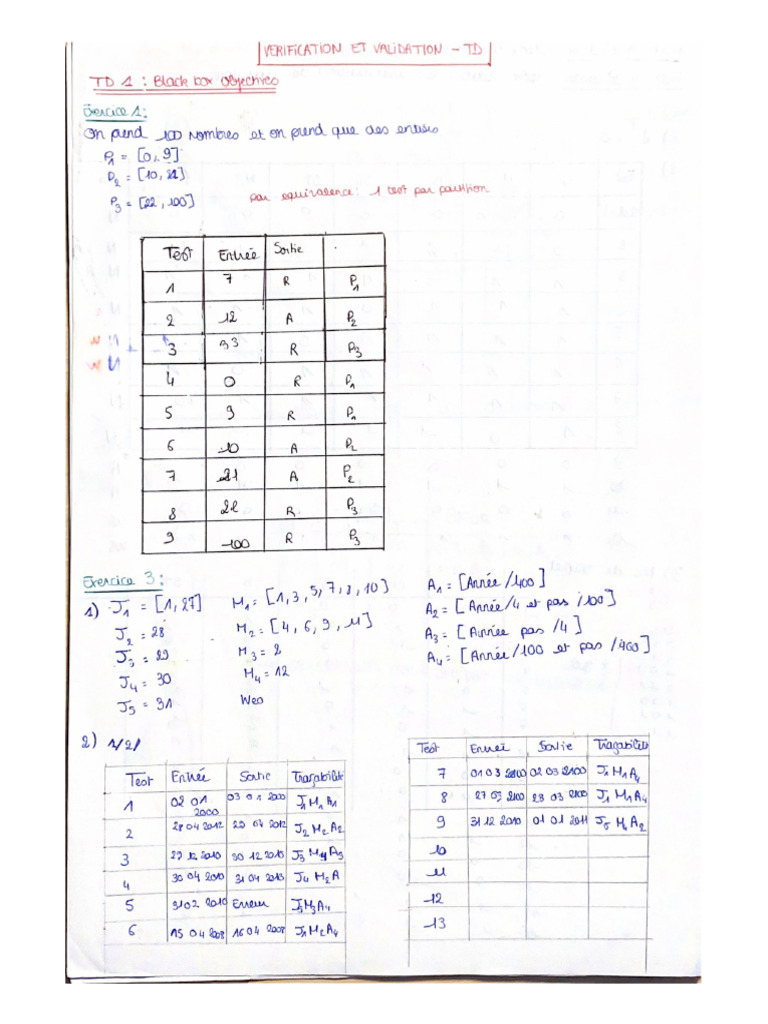 VERIFICATION ET VALIDATION - TD
TD 1 : Black box Objectives
Exercice 1:
On prend 100 nombres et on prend que des entiers
P1 = [0, 9]
P2 = [10, 21]
P3 = [22, 100]
par equivalence: 1 test par partition
Test Entrée Sortie
1 7 R P1
2 12 A P2
3 33 R P3
4 0 R P1
5 9 R P1
6 10 A P2
7 21 A P2
8 22 R P3
9 100 R P3
Exercice 3:
1) J1 = [1, 27] M1 = [1, 3, 5, 7, 8, 10] A1 = [Année /400]
J2 = 28 M2 = [4, 6, 9, 11] A2 = [Année /4 et pas /100]
J3 = 29 M3 = 2 A3 = [Année pas /4]
J4 = 30 M4 = 12 A4 = [Année /100 et pas /400]
J5 = 31
2) 1/2/
Test Entrée Sortie Traçabilité
1 02 01 2000 03 01 2000 J1 M1 A1
2 28 04 2012 29 04 2012 J2 M2 A2
3 29 12 2010 30 12 2010 J3 M4 A3
4 30 04 2010 31 04 2010 J4 M2 A
5 31 02 2010 Erreur J5 M3 A4
6 15 04 2008 16 04 2008 J1 M2 A4
Test Entrée Sortie Traçabilité
7 01 03 2100 02 03 2100 J1 M1 A4
8 27 03 2100 28 03 2100 J1 M1 A4
9 31 12 2010 01 01 2011 J5 M4 A2
10
11
12
13